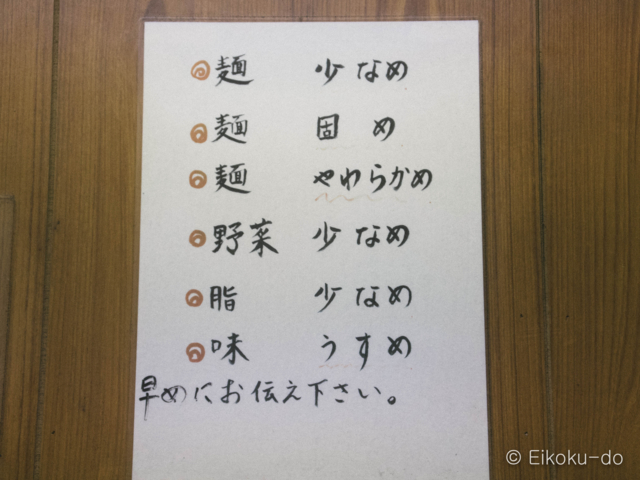 ◎麺 少なめ
◎麺 固め
◎麺 やわらかめ
◎野菜 少なめ
◎脂 少なめ
◎味 うすめ
早めにお伝え下さい。
© Eikoku-do